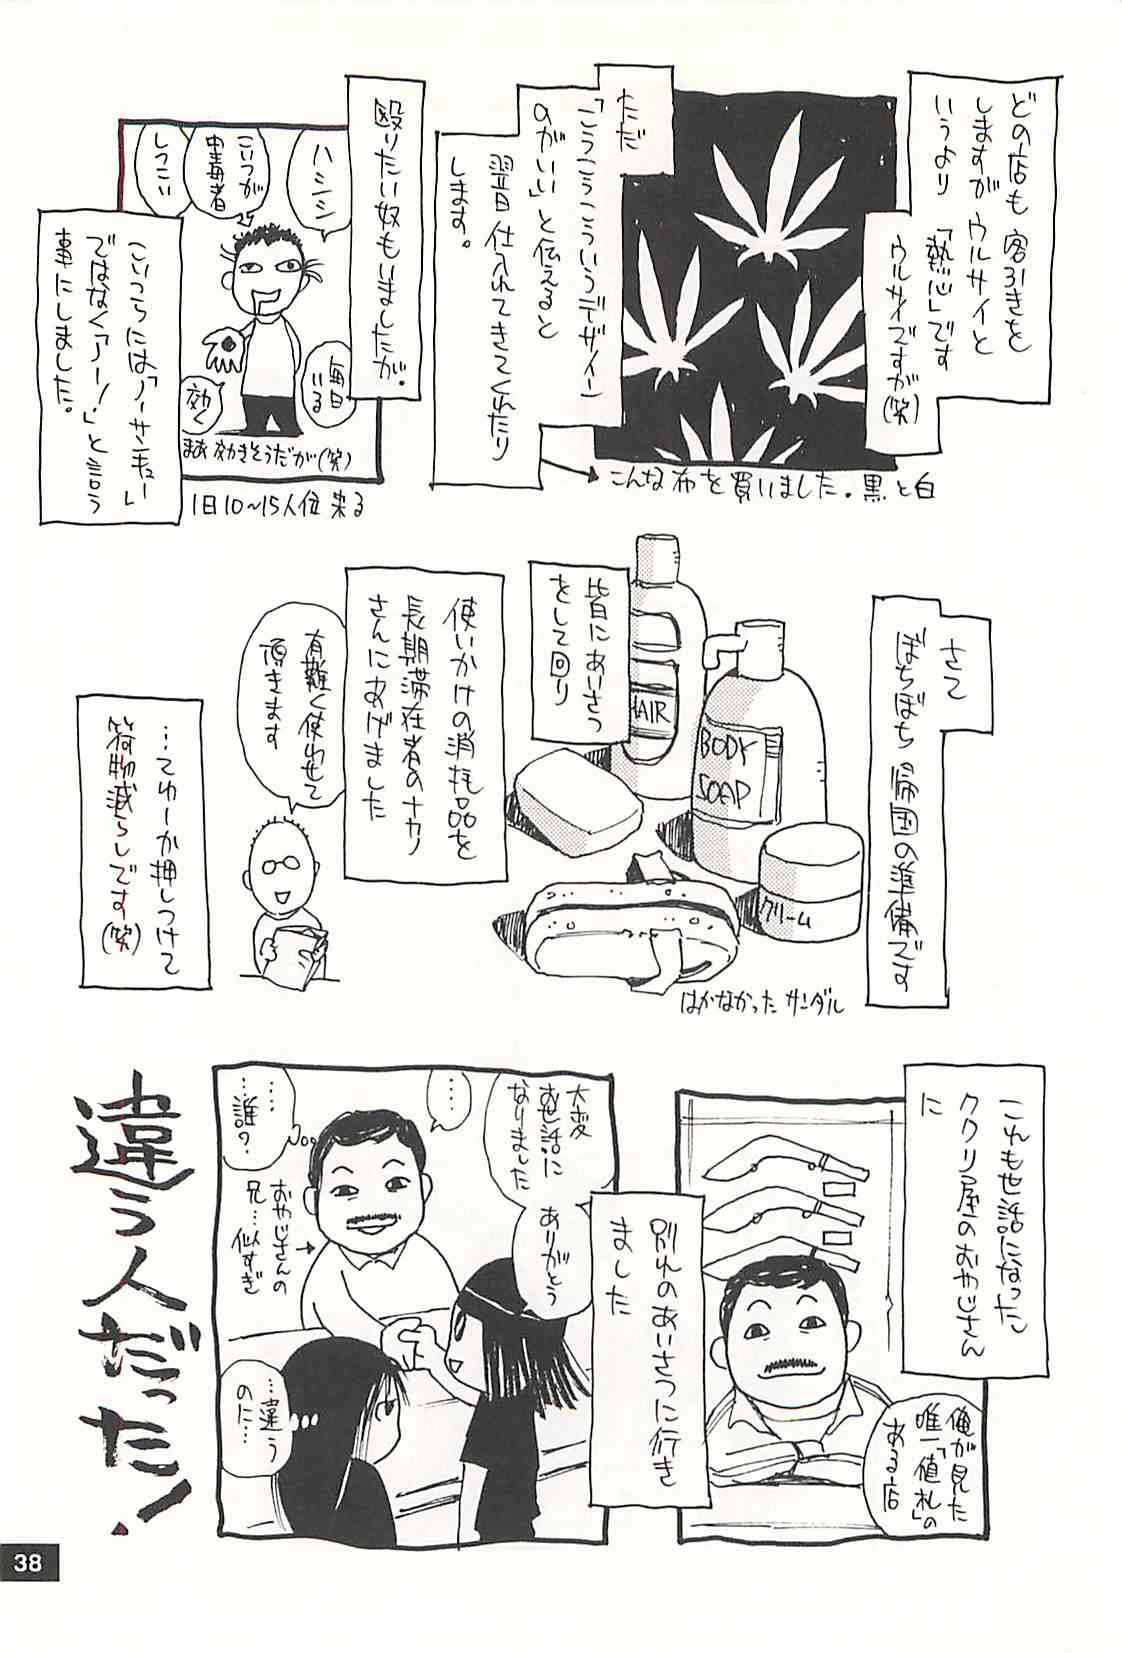 どの店も客引きを
しますがウルサイと
いうより「熱心」です
ウルサイですが(笑)
ただ
「こうこうこういうデザイン
のがいい」と伝えると
翌日仕入れてきてくれたり
します。
こんな布を買いました。黒と白
殴りたい奴もいましたが。
ハシシ
こいつが
中毒者
しつこい
毎日
いる
効く
まあ効きそうだが(笑)
1日10〜15人位来る
こいつらには「ノーサンキュー」
ではなく「アー!」と言う
事にしました。
さて
ぼちぼち帰国の準備です
HAIR
BODY
SOAP
クリーム
はかなかったサンダル
皆にあいさつ
をして回り
使いかけの消耗品を
長期滞在者のナカリ
さんにあげました
有難く使わせて
頂きます
…てゆーか押しつけて
荷物減らしです(笑)
これも世話になった
ククリ屋のおやじさん
に
俺が見た
唯一「値札」の
ある店
別れのあいさつに行き
ました
大変
お世話に
なりました
ありがとう
……
……
…誰?
おやじさんの
兄…似すぎ
…違う
のに…
違う人だった!
38